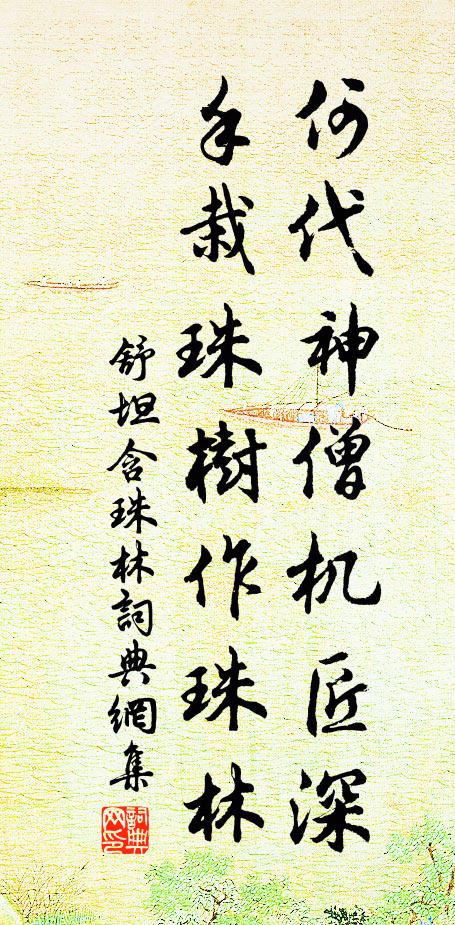 何代神僧机匠深
手栽珠樹作珠林
舒坦含珠林詞典網集
詞典
网印